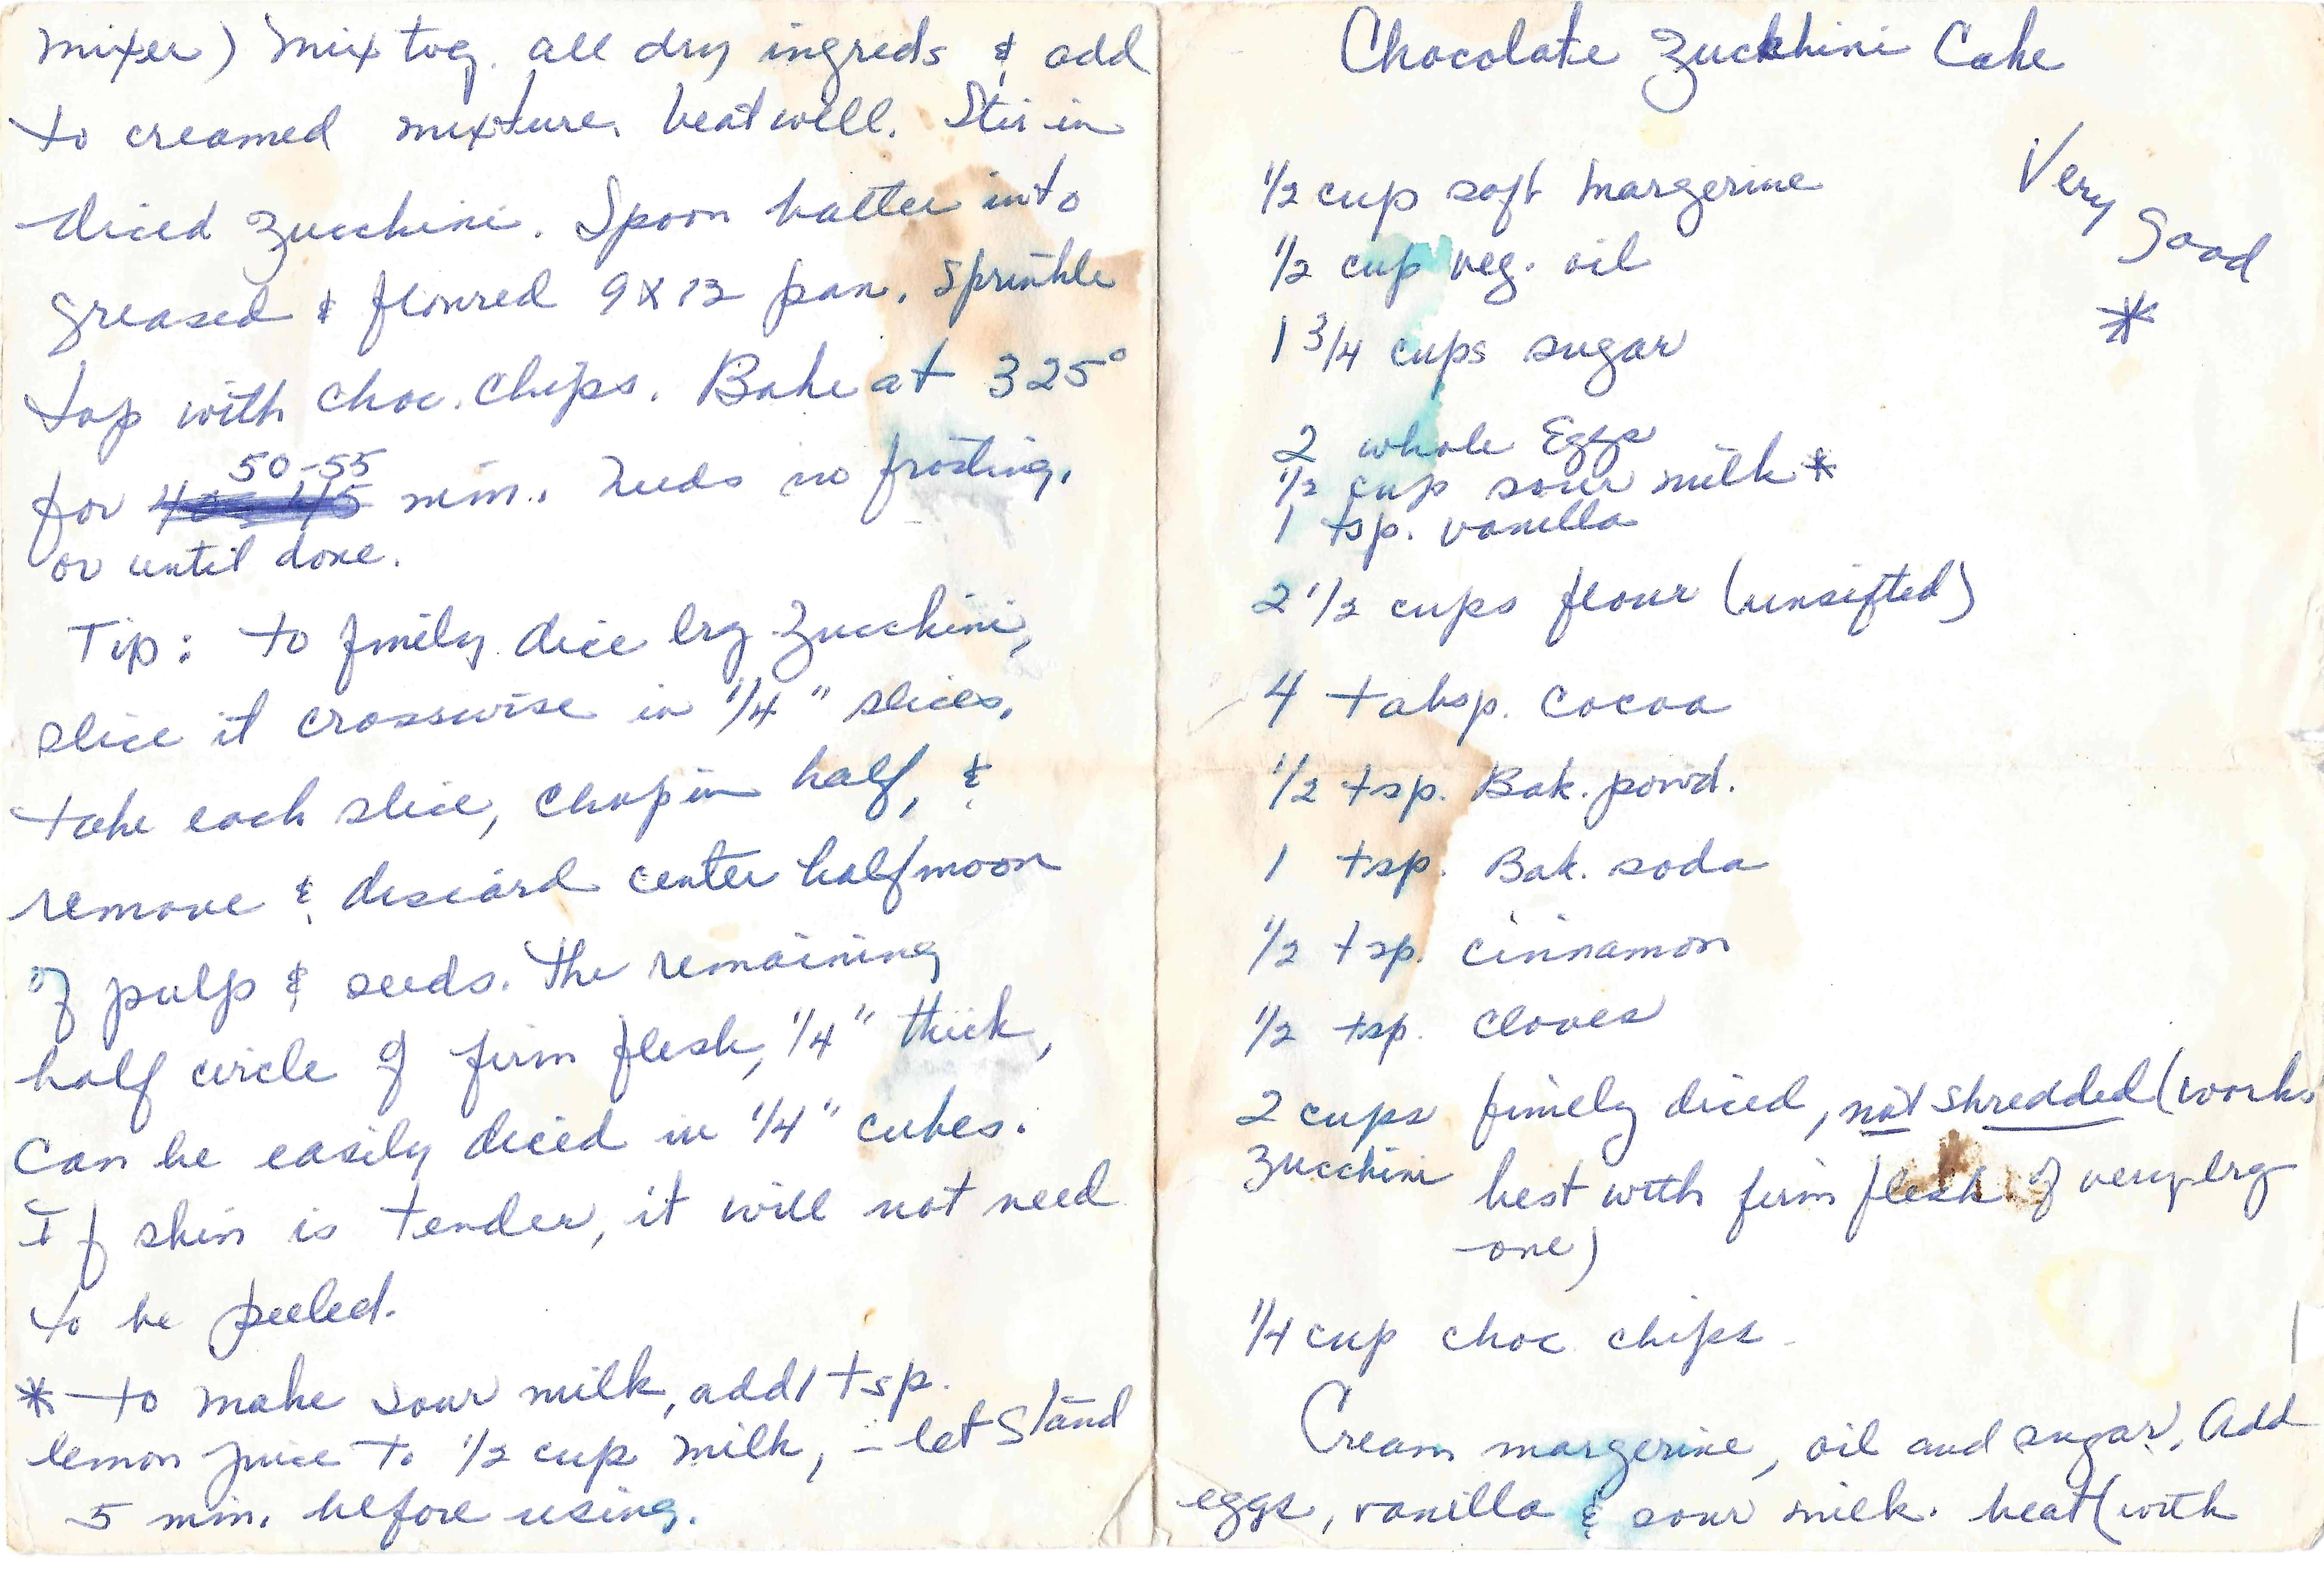 Chocolate Zuckhini Cake
Very
Good
*
1/2 cup soft Margerine
1/2 cup veg. oil
1 3/4 cups sugar
2 whole Eggs
1/2 cup sour milk *
1 tsp. vanilla
2 1/2 cups flour (unsifted)
4 tabsp. Cocoa
1/2 tsp. Bak. powd.
1 tsp. Bak. soda
1/2 tsp. cinnamon
1/2 tsp. cloves
2 cups finely diced, not shredded (works
Zucchini best with firm flesh of very lrg
one)
1/4 cup choc chips
Cream margerine, oil and sugar. Add
eggs, vanilla & sour milk. beat (with
mixer) Mix tog. all dry ingreds & add
to creamed mixture. beat well. Stir in
diced Zucchini. Spoon batter into
greased & floured 9 x 12 pan. Sprinkle
top with choc. chips. Bake at 325°
50-55
for 40-45 min. Needs no frosting.
or until done.
Tip: to finely dice lrg Zucchini,
slice it crosswise in 1/4" slices.
take each slice, chop in half, &
remove & discard center halfmoon
of pulp & seeds. The remaining
half circle of firm flesh, 1/4" thick,
can be easily diced in 1/4" cubes.
If skin is tender, it will not need
to be peeled.
* to make sour milk, add 1 tsp.
lemon juice to 1/2 cup milk, - let stand
5 min. before using.